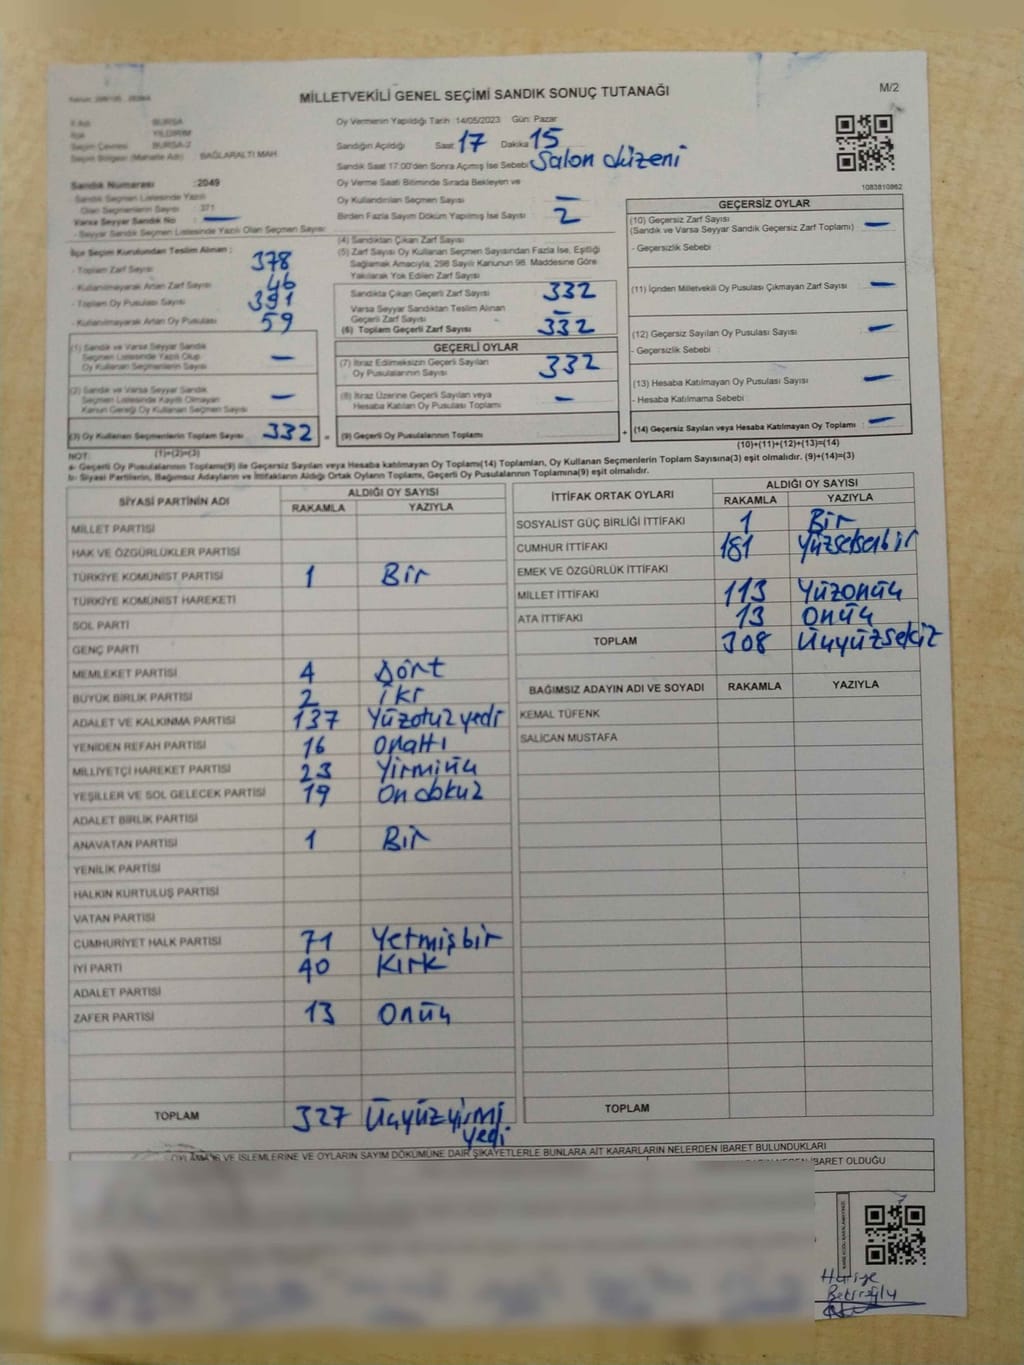 MİLLETVEKİLİ GENEL SEÇİMİ SANDIK SONUÇ TUTANAĞI
M/2
İl Adı BURSA
İlçe YILDIRIM
Seçim Çevresi BURSA-2
Seçim Bölgesi (Mahalle Adı) BAĞLARALTI MAH.
Sandık Numarası :2049
Sandık Seçmen Listesinde Yazılı
Olan Seçmenlerin Sayısı 371
Varsa Seyyar Sandık No : —
- Seyyar Sandık Seçmen Listesinde Yazılı Olan Seçmen Sayısı
Oy Vermenin Yapıldığı Tarih :14/05/2023 Gün: Pazar
Sandığın Açıldığı Saat 17 Dakika 15
Sandık Saat 17:00'den Sonra Açılmış İse Sebebi Salon düzeni
Oy Verme Saati Bitiminde Sırada Bekleyen ve
Oy Kullandırılan Seçmen Sayısı —
Birden Fazla Sayım Döküm Yapılmış İse Sayısı 2
1083810862
İlçe Seçim Kurulundan Teslim Alınan ;
- Toplam Zarf Sayısı 378
- Kullanılmayarak Artan Zarf Sayısı 46
- Toplam Oy Pusulası Sayısı 391
- Kullanılmayarak Artan Oy Pusulası 59
(1) Sandık ve Varsa Seyyar Sandık
Seçmen Listesinde Yazılı Olup
Oy Kullanan Seçmenlerin Sayısı —
(2) Sandık ve Varsa Seyyar Sandık
Seçmen Listesinde Kayıtlı Olmayan
Kanun Gereği Oy Kullanan Seçmen Sayısı —
(3) Oy Kullanan Seçmenlerin Toplam Sayısı 332 =
(4) Sandıktan Çıkan Zarf Sayısı
(5) Zarf Sayısı Oy Kullanan Seçmen Sayısından Fazla İse, Eşitliği
Sağlamak Amacıyla, 298 Sayılı Kanunun 98. Maddesine Göre
Yakılarak Yok Edilen Zarf Sayısı
Sandıkta Çıkan Geçerli Zarf Sayısı 332
Varsa Seyyar Sandıktan Teslim Alınan
Geçerli Zarf Sayısı —
(6) Toplam Geçerli Zarf Sayısı 332
GEÇERLİ OYLAR
(7) İtiraz Edilmeksizin Geçerli Sayılan
Oy Pusulalarının Sayısı 332
(8) İtiraz Üzerine Geçerli Sayılan veya
Hesaba Katılan Oy Pusulası Toplamı —
(9) Geçerli Oy Pusulalarının Toplamı +
GEÇERSİZ OYLAR
(10) Geçersiz Zarf Sayısı
(Sandık ve Varsa Seyyar Sandık Geçersiz Zarf Toplamı) —
- Geçersizlik Sebebi
(11) İçinden Milletvekili Oy Pusulası Çıkmayan Zarf Sayısı —
(12) Geçersiz Sayılan Oy Pusulası Sayısı —
- Geçersizlik Sebebi
(13) Hesaba Katılmayan Oy Pusulası Sayısı —
- Hesaba Katılmama Sebebi
(14) Geçersiz Sayılan veya Hesaba Katılmayan Oy Toplamı : —
NOT: (1)+(2)=(3)
(10)+(11)+(12)+(13)=(14)
a- Geçerli Oy Pusulalarının Toplamı(9) ile Geçersiz Sayılan veya Hesaba katılmayan Oy Toplamı(14) Toplamları, Oy Kullanan Seçmenlerin Toplam Sayısına(3) eşit olmalıdır. (9)+(14)=(3)
b- Siyasi Partilerin, Bağımsız Adayların ve İttifakların Aldığı Ortak Oyların Toplamı, Geçerli Oy Pusulalarının Toplamına(9) eşit olmalıdır.
SİYASİ PARTİNİN ADI ALDIĞI OY SAYISI
RAKAMLA YAZIYLA
MİLLET PARTİSİ
HAK VE ÖZGÜRLÜKLER PARTİSİ
TÜRKİYE KOMÜNİST PARTİSİ 1 Bir
TÜRKİYE KOMÜNİST HAREKETİ
SOL PARTİ
GENÇ PARTİ
MEMLEKET PARTİSİ 4 Dört
BÜYÜK BİRLİK PARTİSİ 2 İki
ADALET VE KALKINMA PARTİSİ 137 Yüzotuzyedi
YENİDEN REFAH PARTİSİ 16 Onaltı
MİLLİYETÇİ HAREKET PARTİSİ 23 Yirmiüç
YEŞİLLER VE SOL GELECEK PARTİSİ 19 Ondokuz
ADALET BİRLİK PARTİSİ
ANAVATAN PARTİSİ 1 Bir
YENİLİK PARTİSİ
HALKIN KURTULUŞ PARTİSİ
VATAN PARTİSİ
CUMHURİYET HALK PARTİSİ 71 Yetmişbir
İYİ PARTİ 40 Kırk
ADALET PARTİSİ
ZAFER PARTİSİ 13 Onüç
TOPLAM 327 Üçyüzyirmi
yedi
İTTİFAK ORTAK OYLARI ALDIĞI OY SAYISI
RAKAMLA YAZIYLA
SOSYALİST GÜÇ BİRLİĞİ İTTİFAKI 1 Bir
CUMHUR İTTİFAKI 181 Yüzseksenbir
EMEK VE ÖZGÜRLÜK İTTİFAKI
MİLLET İTTİFAKI 113 Yüzonüç
ATA İTTİFAKI 13 Onüç
TOPLAM 308 Üçyüzsekiz
BAĞIMSIZ ADAYIN ADI VE SOYADI RAKAMLA YAZIYLA
KEMAL TÜFENK
SALİCAN MUSTAFA
TOPLAM
VE İŞLEMLERİNE VE OYLARIN SAYIM DÖKÜMÜNE DAİR ŞİKAYETLERLE BUNLARA AİT KARARLARIN NELERDEN İBARET BULUNDUKLARI
İBARET OLDUĞU